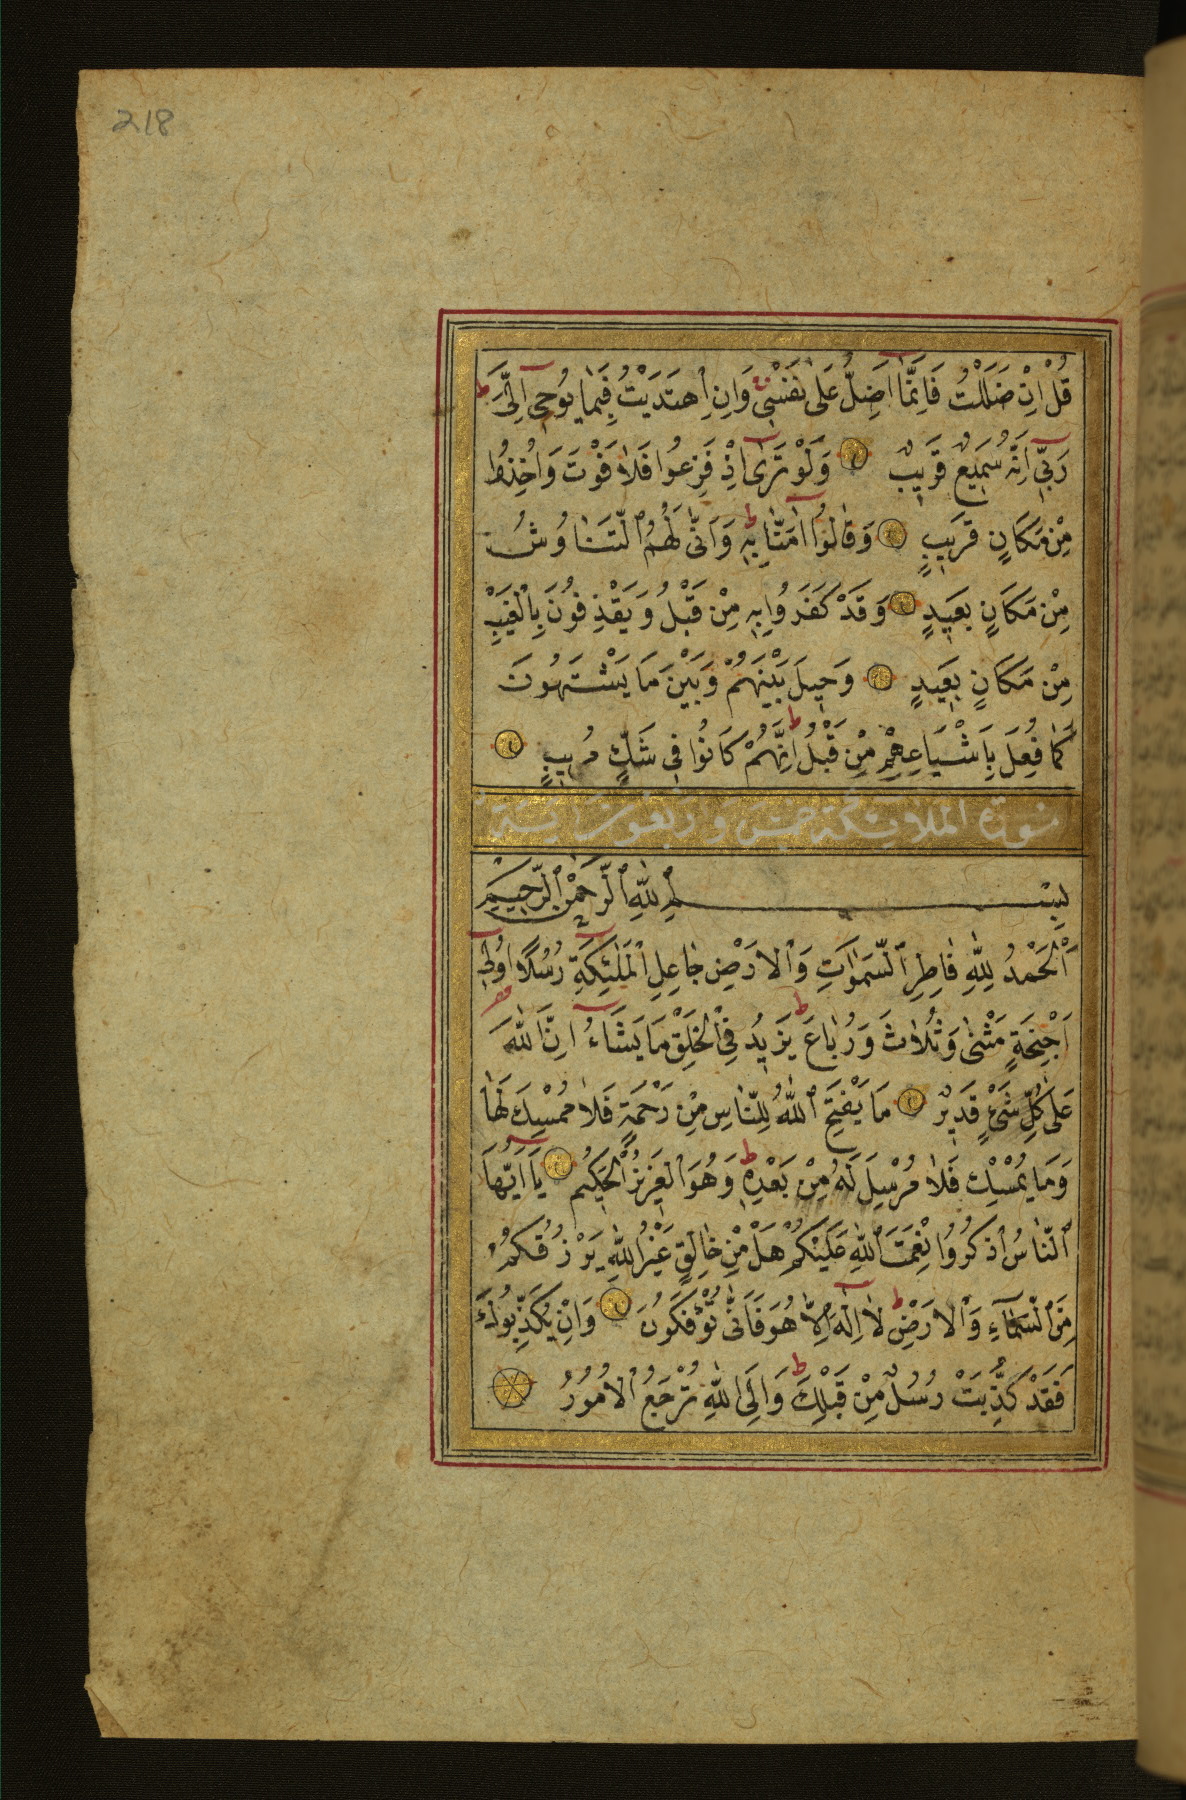 218
قُلْ اِنْ ضَلَلْتُ فَاِنَّمَٓا اَضِلُّ عَلٰى نَفْسٖى وَاِنِ اهْتَدَيْتُ فَبِمَا يُوحٖٓى اِلَىَّ
رَبّٖٓى اِنَّهُ سَمٖيعٌ قَرٖيبٌ وَلَوْ تَرٰٓى اِذْ فَزِعُوا فَلَا فَوْتَ وَاُخِذُوا
مِنْ مَكَانٍ قَرٖيبٍ وَقَالُٓوا اٰمَنَّا بِهٖ وَاَنّٰى لَهُمُ التَّنَاوُشُ
مِنْ مَكَانٍ بَعٖيدٍ وَقَدْ كَفَرُوا بِهٖ مِنْ قَبْلُ وَيَقْذِفُونَ بِالْغَيْبِ
مِنْ مَكَانٍ بَعٖيدٍ وَحٖيلَ بَيْنَهُمْ وَبَيْنَ مَا يَشْتَهُونَ
كَمَا فُعِلَ بِاَشْيَاعِهِمْ مِنْ قَبْلُ اِنَّهُمْ كَانُوا فٖى شَكٍّ مُرٖيبٍ
سورة الملائكة خمس واربعون اية
بِسْمِ اللّٰهِ الرَّحْمٰنِ الرَّحٖيمِ
اَلْحَمْدُ لِلّٰهِ فَاطِرِ السَّمٰوَاتِ وَالْاَرْضِ جَاعِلِ الْمَلٰٓئِكَةِ رُسُلًا اُولٖٓى
اَجْنِحَةٍ مَثْنٰى وَثُلَاثَ وَرُبَاعَ يَزٖيدُ فِى الْخَلْقِ مَا يَشَٓاءُ اِنَّ اللّٰهَ
عَلٰى كُلِّ شَىْءٍ قَدٖيرٌ مَا يَفْتَحِ اللّٰهُ لِلنَّاسِ مِنْ رَحْمَةٍ فَلَا مُمْسِكَ لَهَا
وَمَا يُمْسِكْ فَلَا مُرْسِلَ لَهُ مِنْ بَعْدِهٖ وَهُوَ الْعَزٖيزُ الْحَكٖيمُ يَٓا اَيُّهَا
النَّاسُ اذْكُرُوا نِعْمَتَ اللّٰهِ عَلَيْكُمْ هَلْ مِنْ خَالِقٍ غَيْرُ اللّٰهِ يَرْزُقُكُمْ
مِنَ السَّمَٓاءِ وَالْاَرْضِ لَٓا اِلٰهَ اِلَّا هُوَ فَاَنّٰى تُؤْفَكُونَ وَاِنْ يُكَذِّبُوكَ
فَقَدْ كُذِّبَتْ رُسُلٌ مِنْ قَبْلِكَ وَاِلَى اللّٰهِ تُرْجَعُ الْاُمُورُ